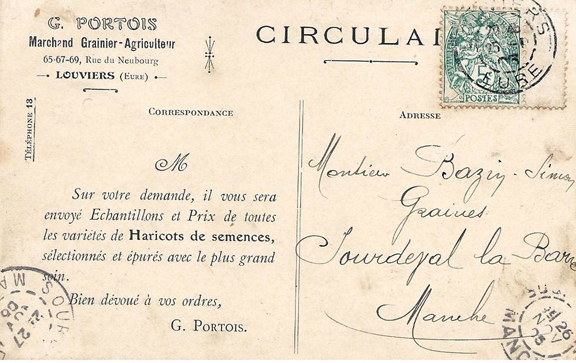 G. PORTOIS
Marchand Grainier-Agriculteur
65-67-69, Rue du Neubourg
LOUVIERS (EURE)
TÉLÉPHONE 13
CIRCULAI
5
POSTES
EURE
CORRESPONDANCE
M
Sur votre demande, il vous sera
envoyé Echantillons et Prix de toutes
les variétés de Haricots de semences,
sélectionnés et épurés avec le plus grand
soin.
Bien dévoué à vos ordres,
G. PORTOIS.
ADRESSE
Monsieur Bazin-
Graines
Sourdeval la Barre
Manche